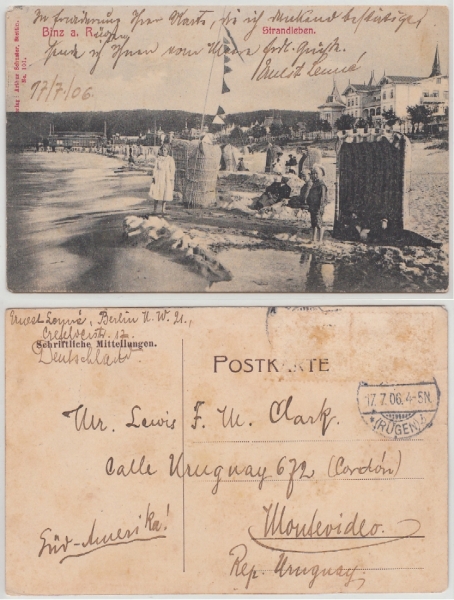 In Erwiderung Ihrer Karte, die ich dankend bestätige,
Binz a. Rügen Strandleben.
sende ich Ihnen vom Meere Grüße.
Ernst
17/7/06.
Verlag: Arthur Schuster, Stettin.
No. 101.
Ernest , Berlin N.W. 21.,
Schriftliche Mitteilungen.
Deutschland.
POSTKARTE
17.7.06.4-5N.
(RÜGEN)
Mr. Lewis F. M. Clark.
Calle Uruguay 672 (Cordón)
Montevideo.
Süd-Amerika!
Rep. Uruguay.